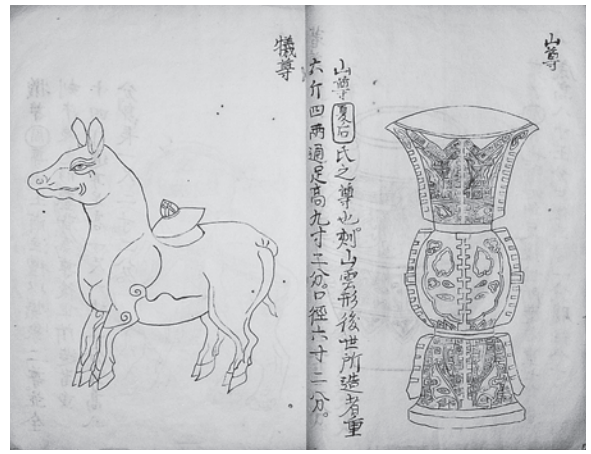 山尊
山尊夏后氏之尊也。刻山雲形後世所造者重
六斤四兩通足高九寸二分。口徑六寸二分。
犧尊